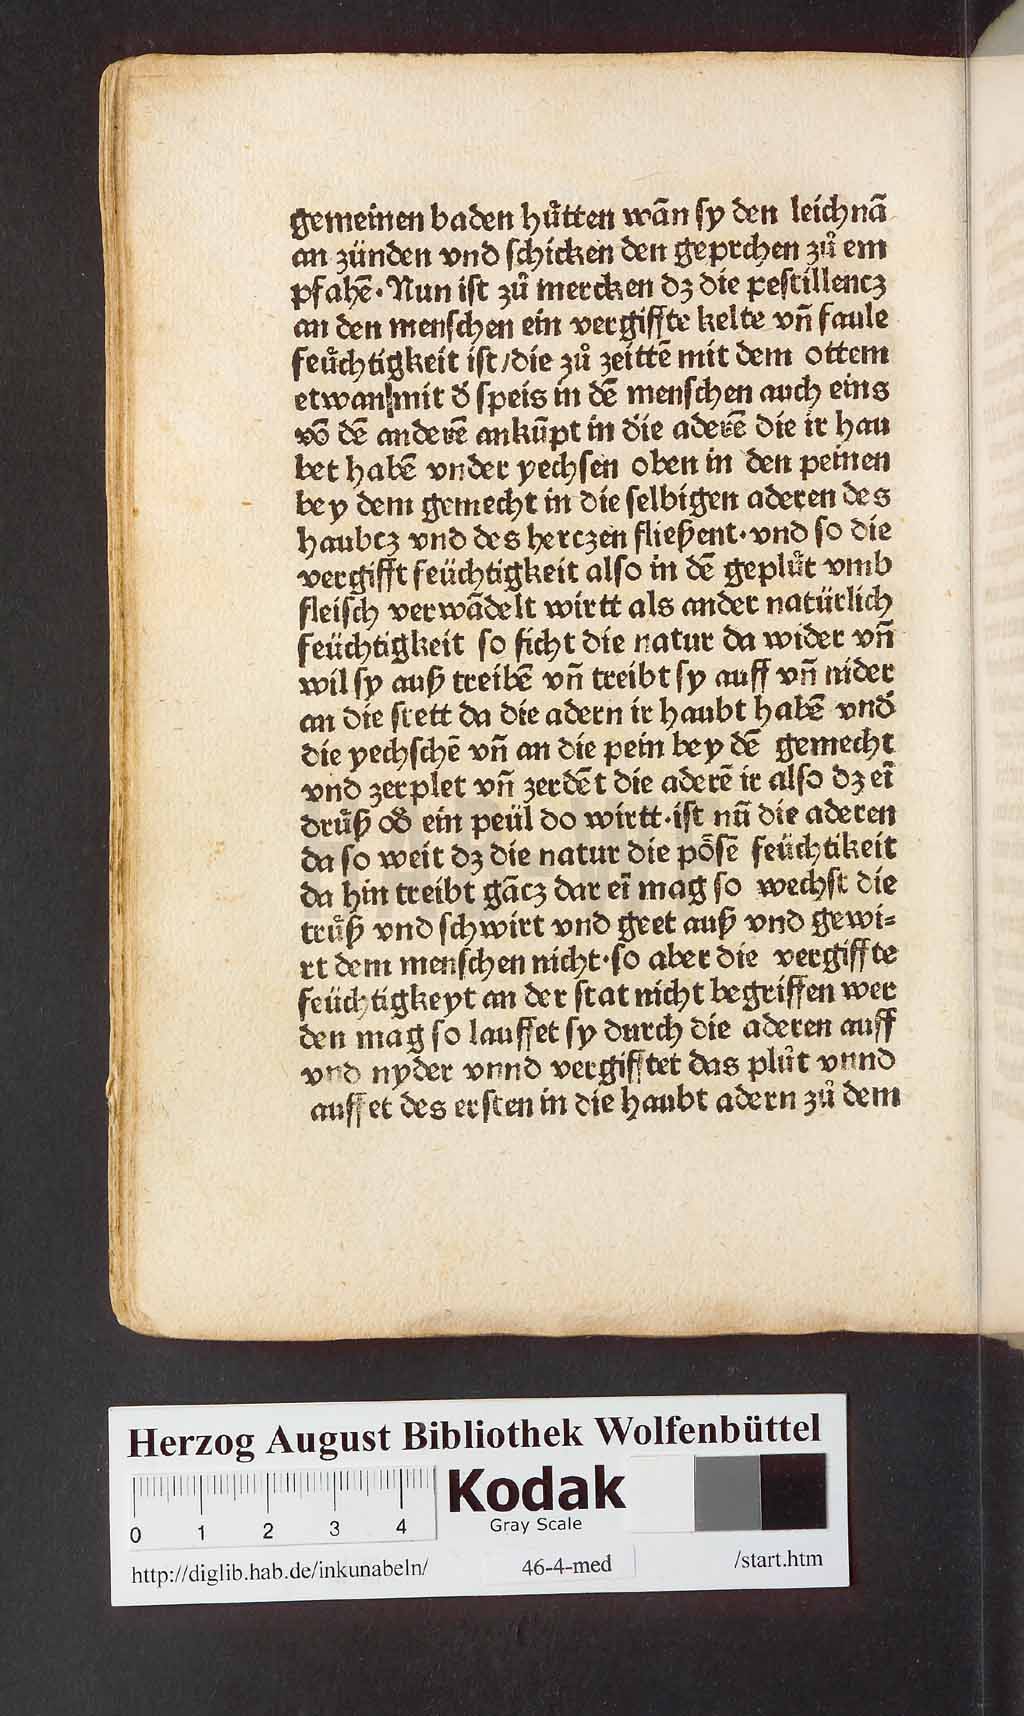 gemeinen baden huͤtten wañ sy den leichnã
an zünden vnd schicken den geprchen zuͦ em
pfahẽ· Nun ist zuͦ mercken dz die pestillencz
an den menschen ein vergiffte kelte vñ faule
feuͤchtigkeit ist/die zuͦ zeittẽ mit dem ottem
etwan mit d' speis in dẽ menschen auch eins
võ dẽ anderẽ ankũpt in die aderẽ die ir hau
bet habẽ vnder yechsen oben in den peinen
bey dem gemecht in die selbigen aderen des
haubcz vnd des herczen fließent· vnd so die
vergifft feüchtigkeit also in dẽ gepluͤt vmb
fleisch verwãdelt wirtt als ander natürlich
feüchtigkeit so ficht die natur da wider vñ
wil sy auß treibẽ vñ treibt sy auff vñ nider
an die stett da die adern ir haubt habẽ vnd'
die yechschẽ vñ an die pein bey dẽ gemecht
vnd zerplet vñ zerdẽt die aderẽ ir also dz eĩ
druͤß od' ein peül do wirtt· ist nũ die aderen
da so weit dz die natur die poͤsẽ feüchtikeit
da hin treibt gãcz dar eĩ mag so wechst die
truͤß vnd schwirt vnd geet auß vnd gewi=
rt dem menschen nicht· so aber die vergiffte
feüchtigkeyt an der stat nicht begriffen wer
den mag so lauffet sy durch die aderen auff
vnd nyder vnnd vergifftet das pluͦt vnnd
auffet des ersten in die haubt adern zuͦ dem
Herzog August Bibliothek Wolfenbüttel
0 1 2 3 4
Kodak
Gray Scale
http://diglib.hab.de/inkunabeln/ 46-4-med /start.htm